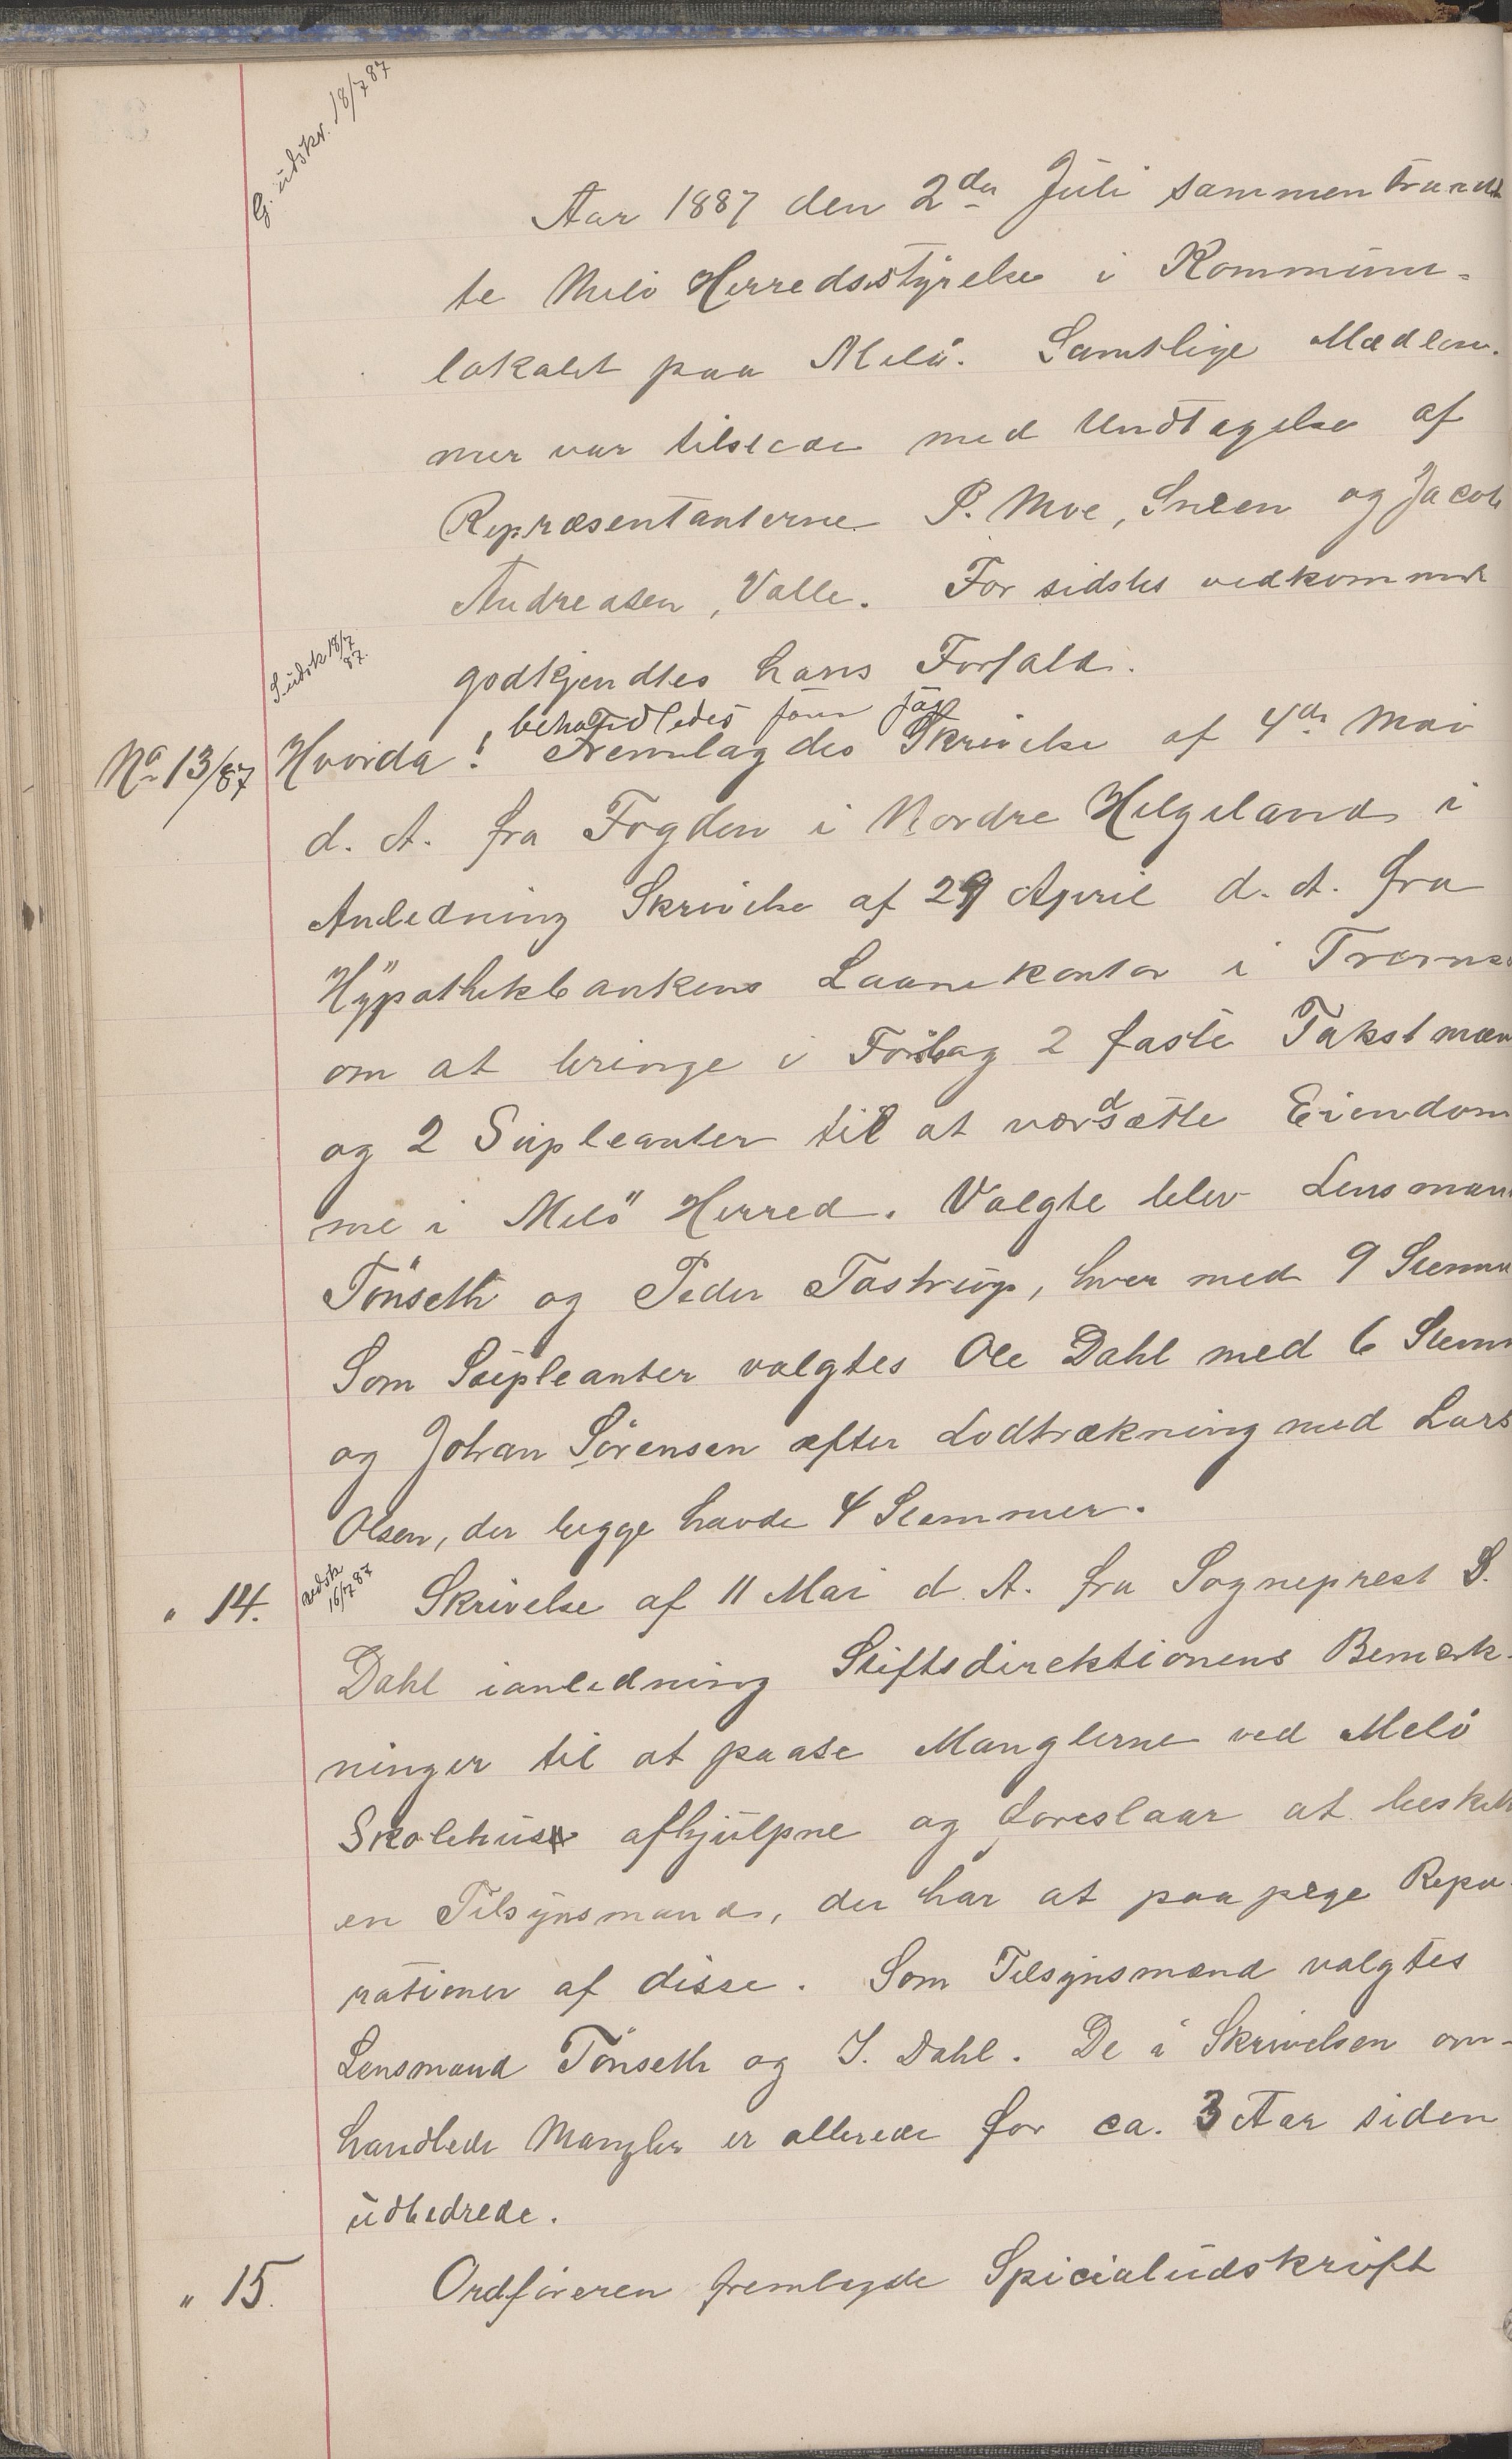 G. udskr. 18/7 87
Aar 1887 den 2den Juli sammentraadt
te Melö Herredsstyrelse i Kommune-
lokalet paa Melö. Samtlige Medlem-
mer var tilstede med Undtagelse af
Repræsentanterne P. Moe, Sneen og Jacob
Andreasen, Valle. For sidstes vedkommende
godkjendtes hans Forfald.
Sudsk 18/7 87.
behandledes
No 13/87 Hvorda! Fremlagdes Skrivelse af 4de Mai
d. A. fra Fogden i Nordre Helgeland i
Anledning Skrivelse af 29 April d. A. fra
Hypothekbankens Laanekontor i Tromsø
om at bringe i Forslag 2 faste Takstmæn
og 2 Supleanter til at værdsætte Eiendom
me i Melö Herred. Valgte blev Lensmand
Tönseth og Peder Tostrup, hver med 9 Stemm
Som Supleanter valgtes Ole Dahl med 6 Stemm
og Johan Sörensen efter Lodtrækning med Lars
Olsen, der begge havde 4 Stemmer.
" 14. udsk 16/7 87 Skrivelse af 11 Mai d. A. fra Sogneprest S.
Dahl ianledning Stiftsdirektionens Bemærk-
ninger til at paase Manglerne ved Melö
Skolehus afhjulpne og foreslaar at beskikk
en Tilsynsmand, der har at paapege Repa-
rationer af disse. Som Tilsynsmænd valgtes
Lensmand Tönseth og I. Dahl. De i Skrivelsen om-
handlede Mangler er allerede for ca. 3 Aar siden
udbedrede.
" 15. Ordföreren fremlagde Specialudskrift